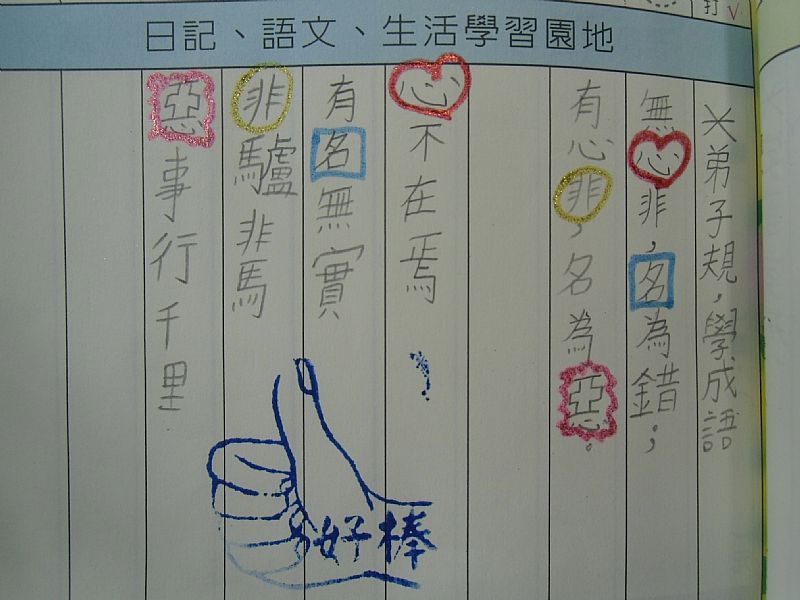 打√
日記、語文、生活學習園地
※弟子規，學成語
無心非，名為錯；
有心非，名為惡。
心不在焉
有名無實
非驢非馬
惡事行千里
好棒